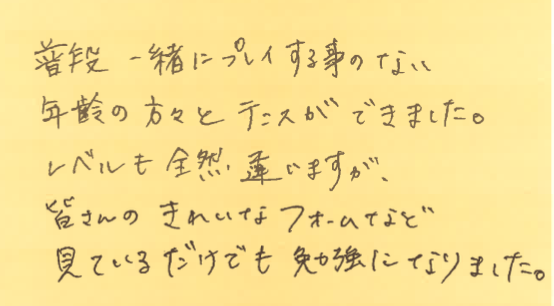 普段 一緒にプレイする事のない
年齢の方々とテニスができました。
レベルも全然違いますが、
皆さんのきれいなフォームなど
見ているだけでも勉強になりました。